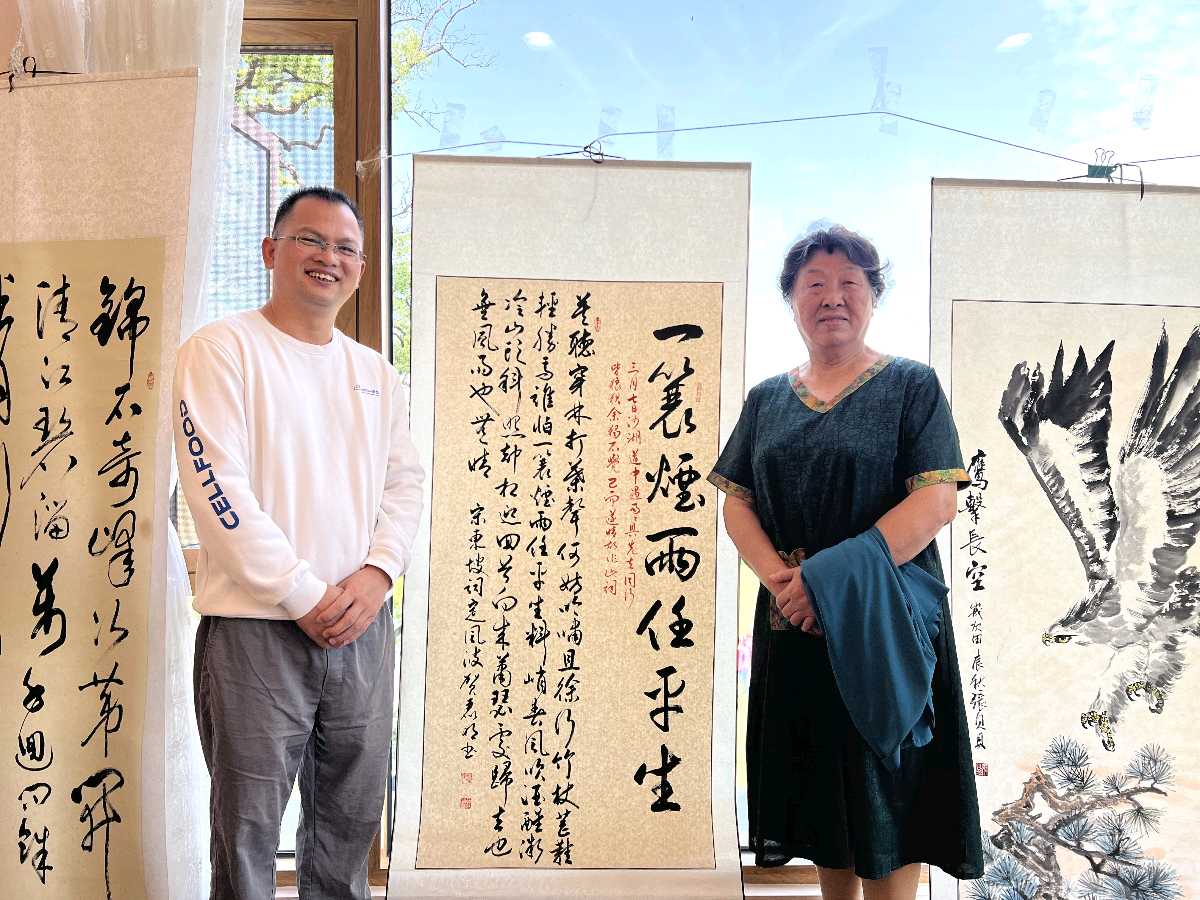 錦石奇峰次第開
清江碧溜萬千迴
CELLFOOD
一蓑煙雨任平生
三月七日沙湖道中遇雨雨具先去同行
皆狼狽余獨不覺已而遂晴故作此詞
莫聽穿林打葉聲何妨吟嘯且徐行竹杖芒鞋
輕勝馬誰怕一蓑煙雨任平生料峭春風吹酒醒微
冷山頭斜照却相迎回首向來蕭瑟處歸去也
無風雨也無晴 宋東坡詞定風波
鷹擊長空
歲次甲辰秋張